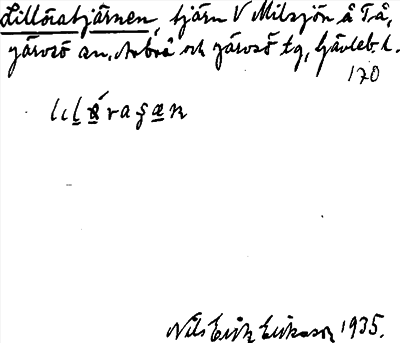 Lillöratjärnen, tjärn V Milsjön å Tå,
järvsö an, Arbrå och järvsö tg, Gävleb. l.
170
Nils Erik Eriksson 1935.